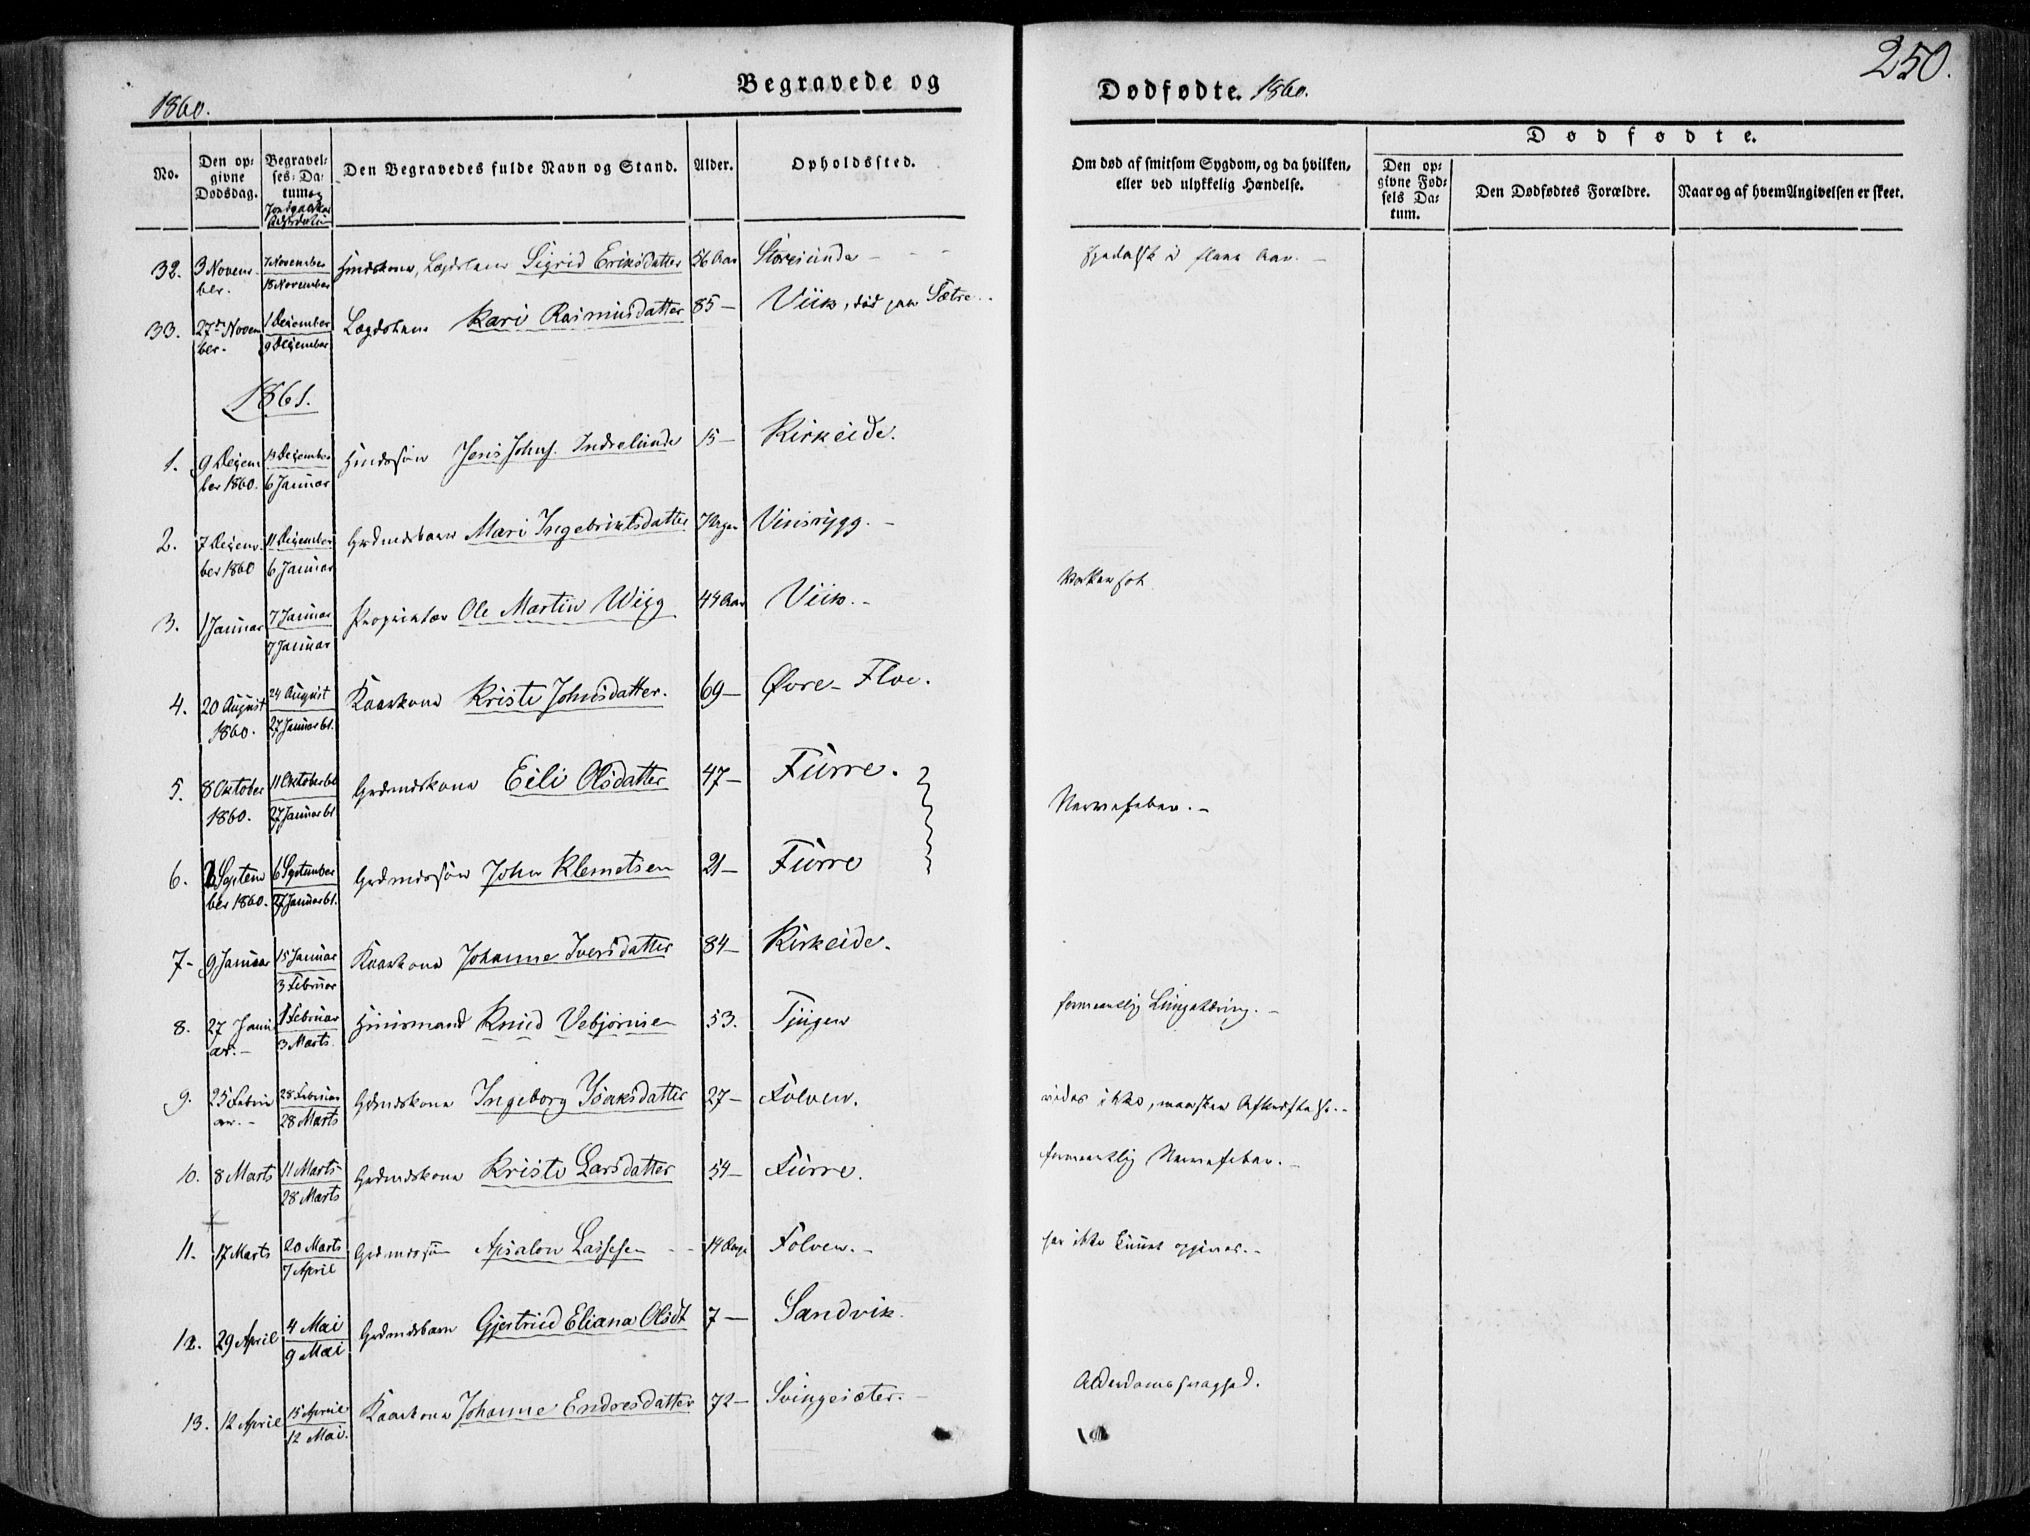 250.
1860.
Begravede og
Dødfødte. 1860.
No.
Den opgivne Dødsdag.
Begravelses-Datum og Jordpaakastelsesdatum
Den Begravedes fulde Navn og Stand.
Alder.
Opholdssted.
Om død af smitsom Sygdom, og da hvilken, eller ved ulykkelig Hændelse.
Dødfødte.
Den opgivne Fødsels Datum.
Den Dødfødtes Forældre.
Naar og af hvem Angivelsen er skeet.
32. 3 November. 7 November 18 November Huuskone, Lægdslem Sigrid Eriksdatter 56 Aar Storesunde - spedalsk i flere Aar. -
33. 27de November. 1 Dezember 9 Dezember Lægdslem Kari Rasmusdatter 85 - Viik, død paa Sætre.
1861.
1. 9 Dezember 1860. 14 Dezember 6 Januar Huusssøn Jens Johns. Indrelunde 15 - Kirkeide.
2. 7 Dezember 1860 11 Dezember 6 Januar Grdmdsbarn Mari Ingebriktsdatter 7 Uger Visnygg. -
3. 1 Januar 7 Januar 7 Januar Proprietær Ole Martin Wiig 44 Aar Viik. -
4. 20 August 1860. 24 August 27 Januar 61. Kaarkone Kristi Johnsdatter. 69 - Øvre-Floe.
5. 8 Oktober 1860. 11 Oktober 60 27 Januar 61 Grdmdskone Eili Olsdatter 47 - Furre. Nervefeber. -
6. 2 September 1860. 6 September 27 Januar 61. Grdmdssøn John Klemetsen 21 - Furre
7 - 9 Januar 15 Januar 3 Februar Kaarkone Johanne Iversdatter 84 - Kirkeide.
8. 27 Januar. - 1 Februar 3 Marts. Huusmand Knud Vebjørnsen 53. Tjugen formeentlig Lungetæring. -
9. 25 Februar. - 28 Februar 28 Marts Grdmdskone Ingeborg Isaksdatter 27 - Folven. vides ikke, maaskee -
10. 8 Marts 11 Marts 28 Marts Grdmdskone Kristi Larsdatter 54 - Furre. formeentlig Nervefeber. -
11. 17 Marts 20 Marts 7 April Grdmdssøn Apsalon Lassesen - - 14 Dage Folven. - har ikke kunnet opgives. -
12. 29 April 4 Mai 9 Mai Grdmdsbarn Gjertrud Eliana Olsdt 7 - Sandvik.
13. 12 April 15 April 12 Mai. Kaarkone Johanne Endresdatter 72 - Svingesæter. - Alderdomssvaghed.